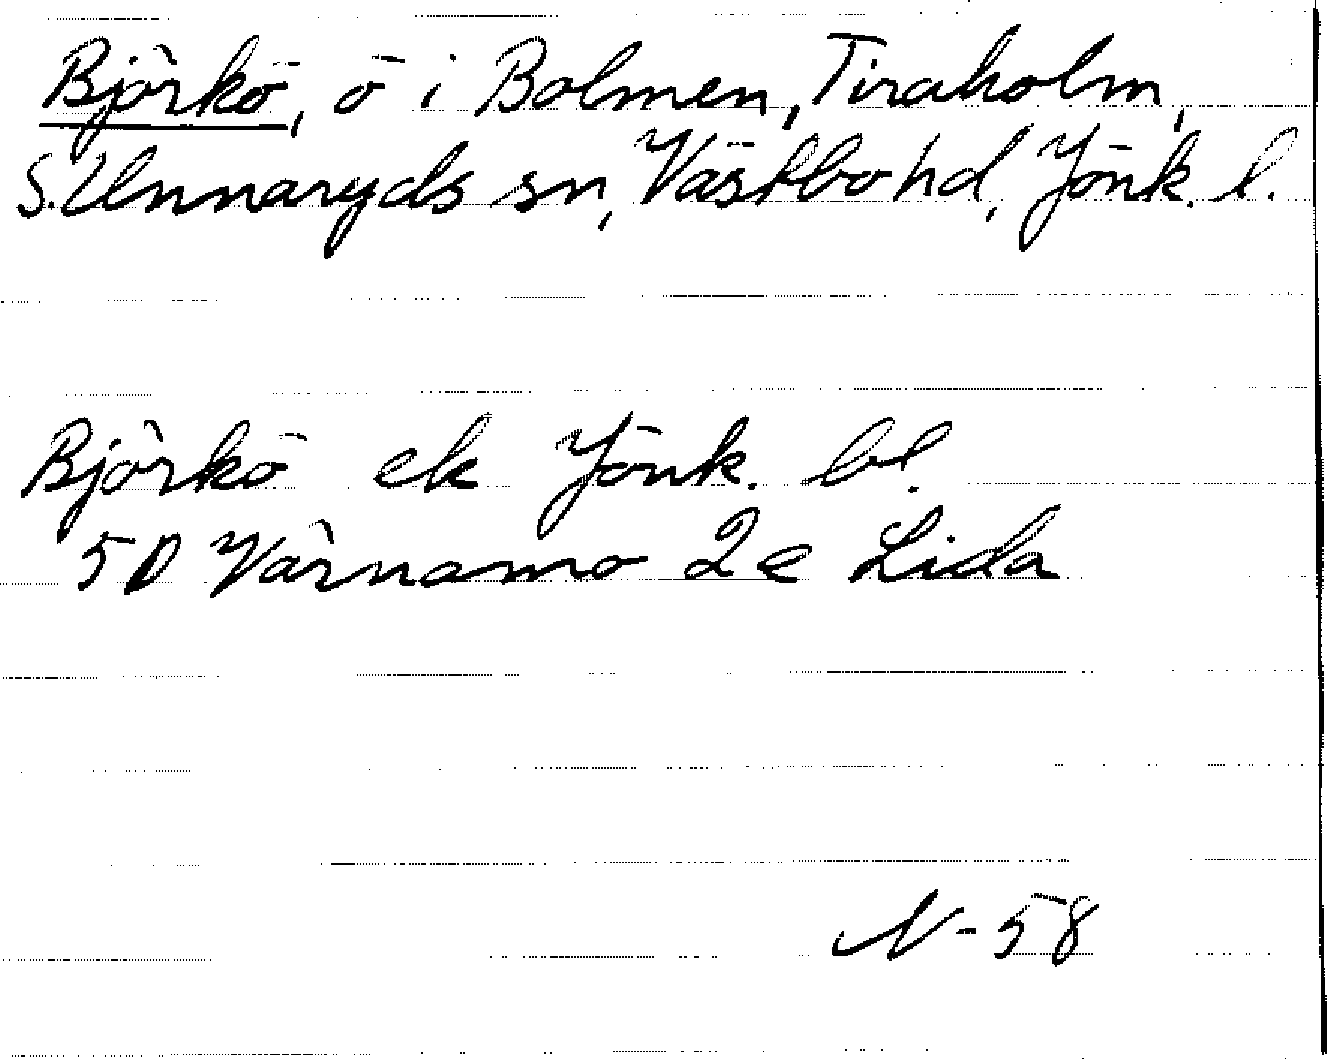 Björkö, ö i Bolmen, Tiraholm,
S. Unnaryds sn, Västbo hd, Jönk. l.
Björkö ek Jönk. bl.
5D Värnamo 2e Lida
N-58